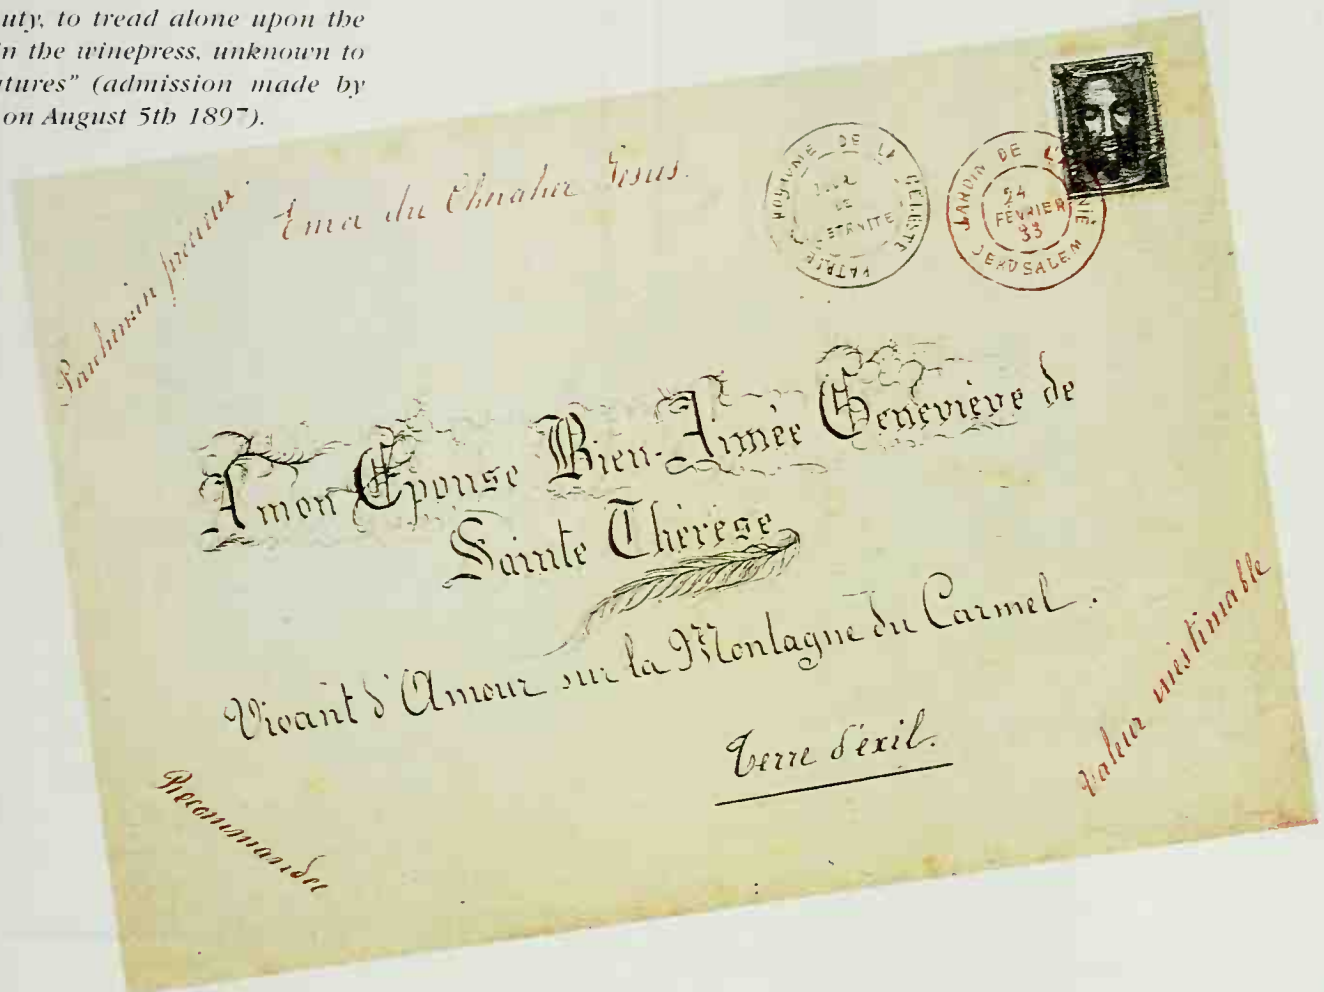 uty, to tread alone upon the
in the winepress, unknown to
tures" (admission made by
on August 5th 1897).
Parchemin précieux.
du Chevalier Jésus.
ROYAUME DE LA CÉLESTE PATRIE
JOUR
DE
L'ETERNITÉ
JARDIN DE L'AGONIE
24
FÉVRIER
33
JERUSALEM
A mon Epouse Bien-Aimée Geneviève de
Sainte Thérèse
Vivant d'Amour sur la Montagne du Carmel.
Terre d'éxil.
Recommandée
Valeur inestimable